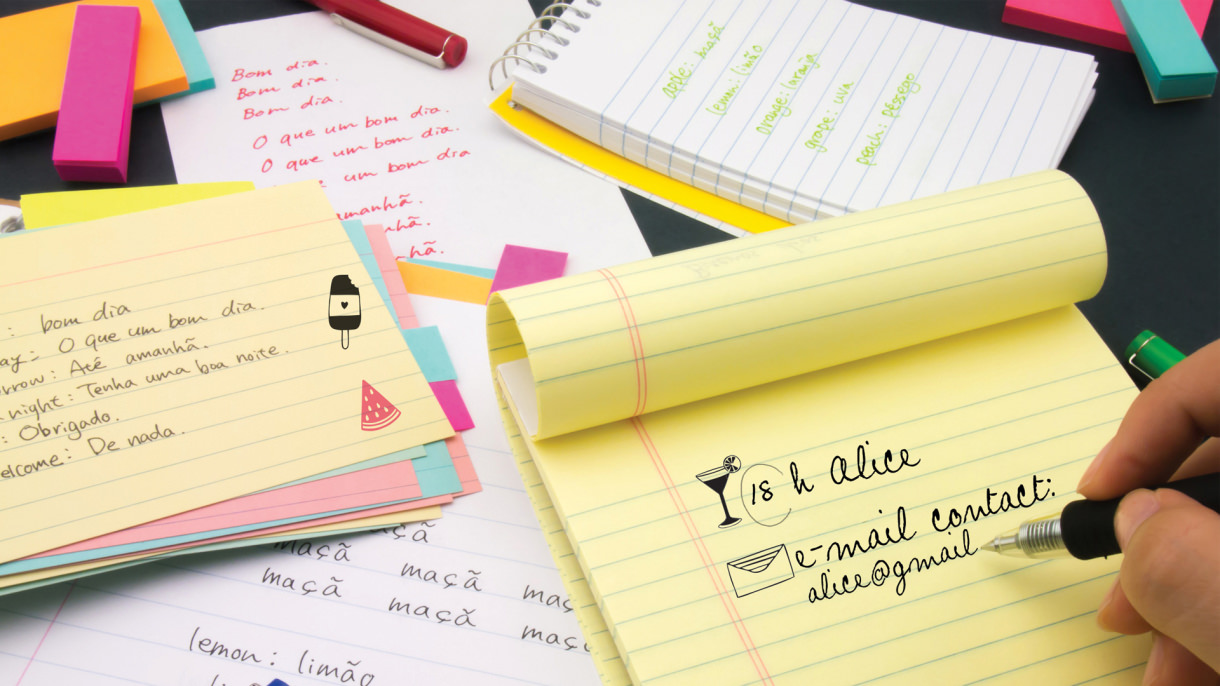 Bom dia.
Bom dia.
Bom dia.
O que um bom dia.
O que um bom dia.
um bom dia
amanhã.
apple: maçã
lemon: limão
orange: laranja
grape: uva
peach: pêssego
: bom dia
: O que um bom dia.
: Até amanhã.
night: Tenha uma boa noite.
: Obrigado.
: De nada.
18 h Alice
e-mail contact:
alice@gmail
maçã
maçã maçã
maçã maçã
lemon: limão